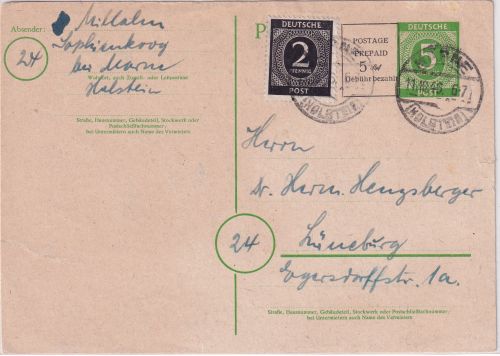 Absender:
24
Sophienkoog
bei Marne
Wohnort, auch Zustell- oder Leitpostamt
Holstein
Straße, Hausnummer, Gebäudeteil, Stockwerk oder
Postschließfachnummer;
bei Untermietern auch Name des Vermieters
P
DEUTSCHE
2
PFENNIG
POST
POSTAGE
PREPAID
5 Pf
Gebühr bezahlt
DEUTSCHE
5
POST
MARNE
(HOLSTEIN)
(HOLSTEIN)
Herrn
Dr. Herm. Hengsberger
24
Lüneburg
Egersdorffstr. 1a.
Straße, Hausnummer, Gebäudeteil, Stockwerk oder Postschließfachnummer;
bei Untermietern auch Name des Vermieters